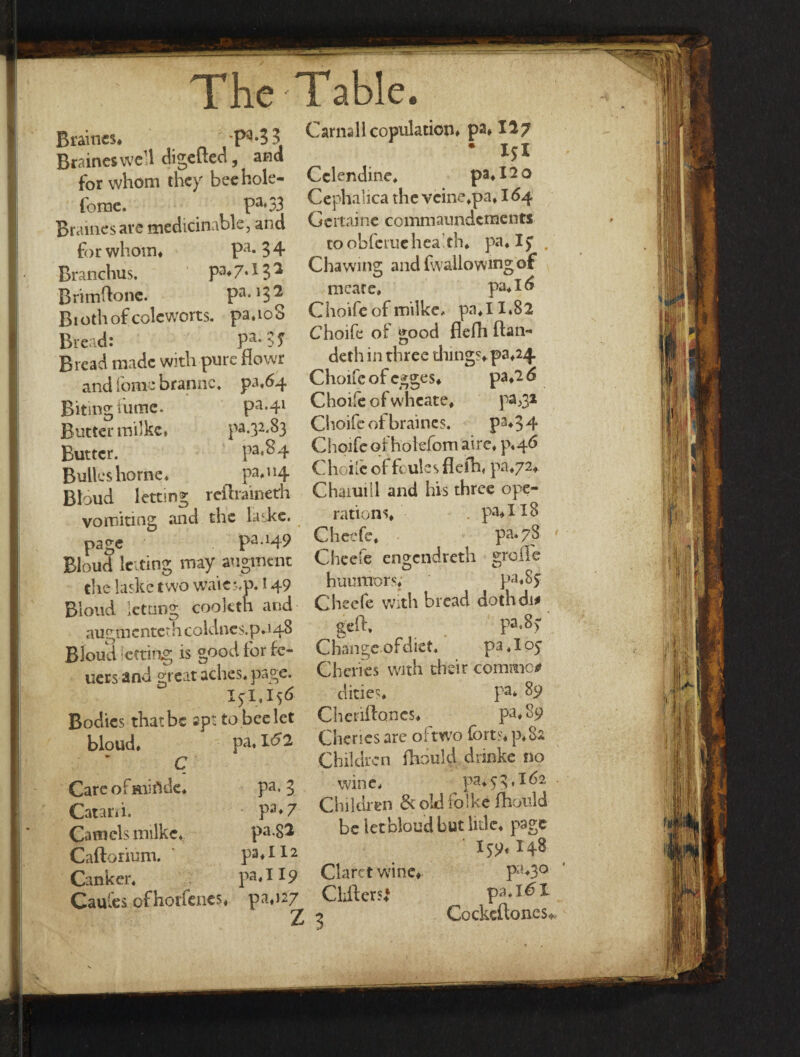 The Table.
Braines. pa.33
Braines well digeſted, and
for whom they bee hole-
ſome. pa.33
Braines are medicinable, and
for whom. pa. 34
Branchus. pa.7.132
Brimſtone. pa. 132
Broth of coleworts. pa.108
Bread: pa. 35
Bread made with pure flowr
and ſome branne. pa.64
Biting fume. pa.41
Butter milke. pa.32.83
Butter. pa.84
Bulles horne. pa.114
Bloud letting reſtraineth
vomiting and the laske.
page pa.149
Bloud letting may augment
the laske two waies.p.149
Bloud letting cooleth and
augmenteth coldnes.p.148
Bloud letting is good for fe-
uers and great aches. page.
151.156
Bodies that be apt to bee let
bloud. pa.162
C
Care of minde. pa. 3
Catarri. pa.7
Camels milke. pa.82
Caſtorium. pa.112
Canker. pa.119
Cauſes of horſenes. pa.127
Carnall copulation. pa.127
151
Celendine. pa.120
Cephalica the veine.pa.164
Certaine commaundements
to obſerue health. pa.15
Chawing and ſwallowing of
meate. pa.16
Choiſe of milke. pa.11.82
Choiſe of good fleſh ſtan-
deth in three things.pa.24
Choiſe of egges. pa.26
Choiſe of wheate. pa.32
Choiſe of braines. pa.34
Choiſe of holeſom aire. p.46
Choiſe of foules fleſh. pa.72.
Charuill and his three ope-
rations. pa.118
Cheeſe. pa.78
Cheeſe engendreth groſſe
huumors. pa.85
Cheeſe with bread doth di-
geſt. pa.85
Change of diet. pa.105
Cheries with their commo-
dities. pa. 89
Cheriſtones. pa.89
Cheries are of two ſorts. p.82
Children ſhould drinke no
wine. pa.53.162
Children & old folke ſhould
be let bloud but litle. page
159.148
Claret wine. pa.30
Cliſters: pa.161
Z 3 Cockeſtones.